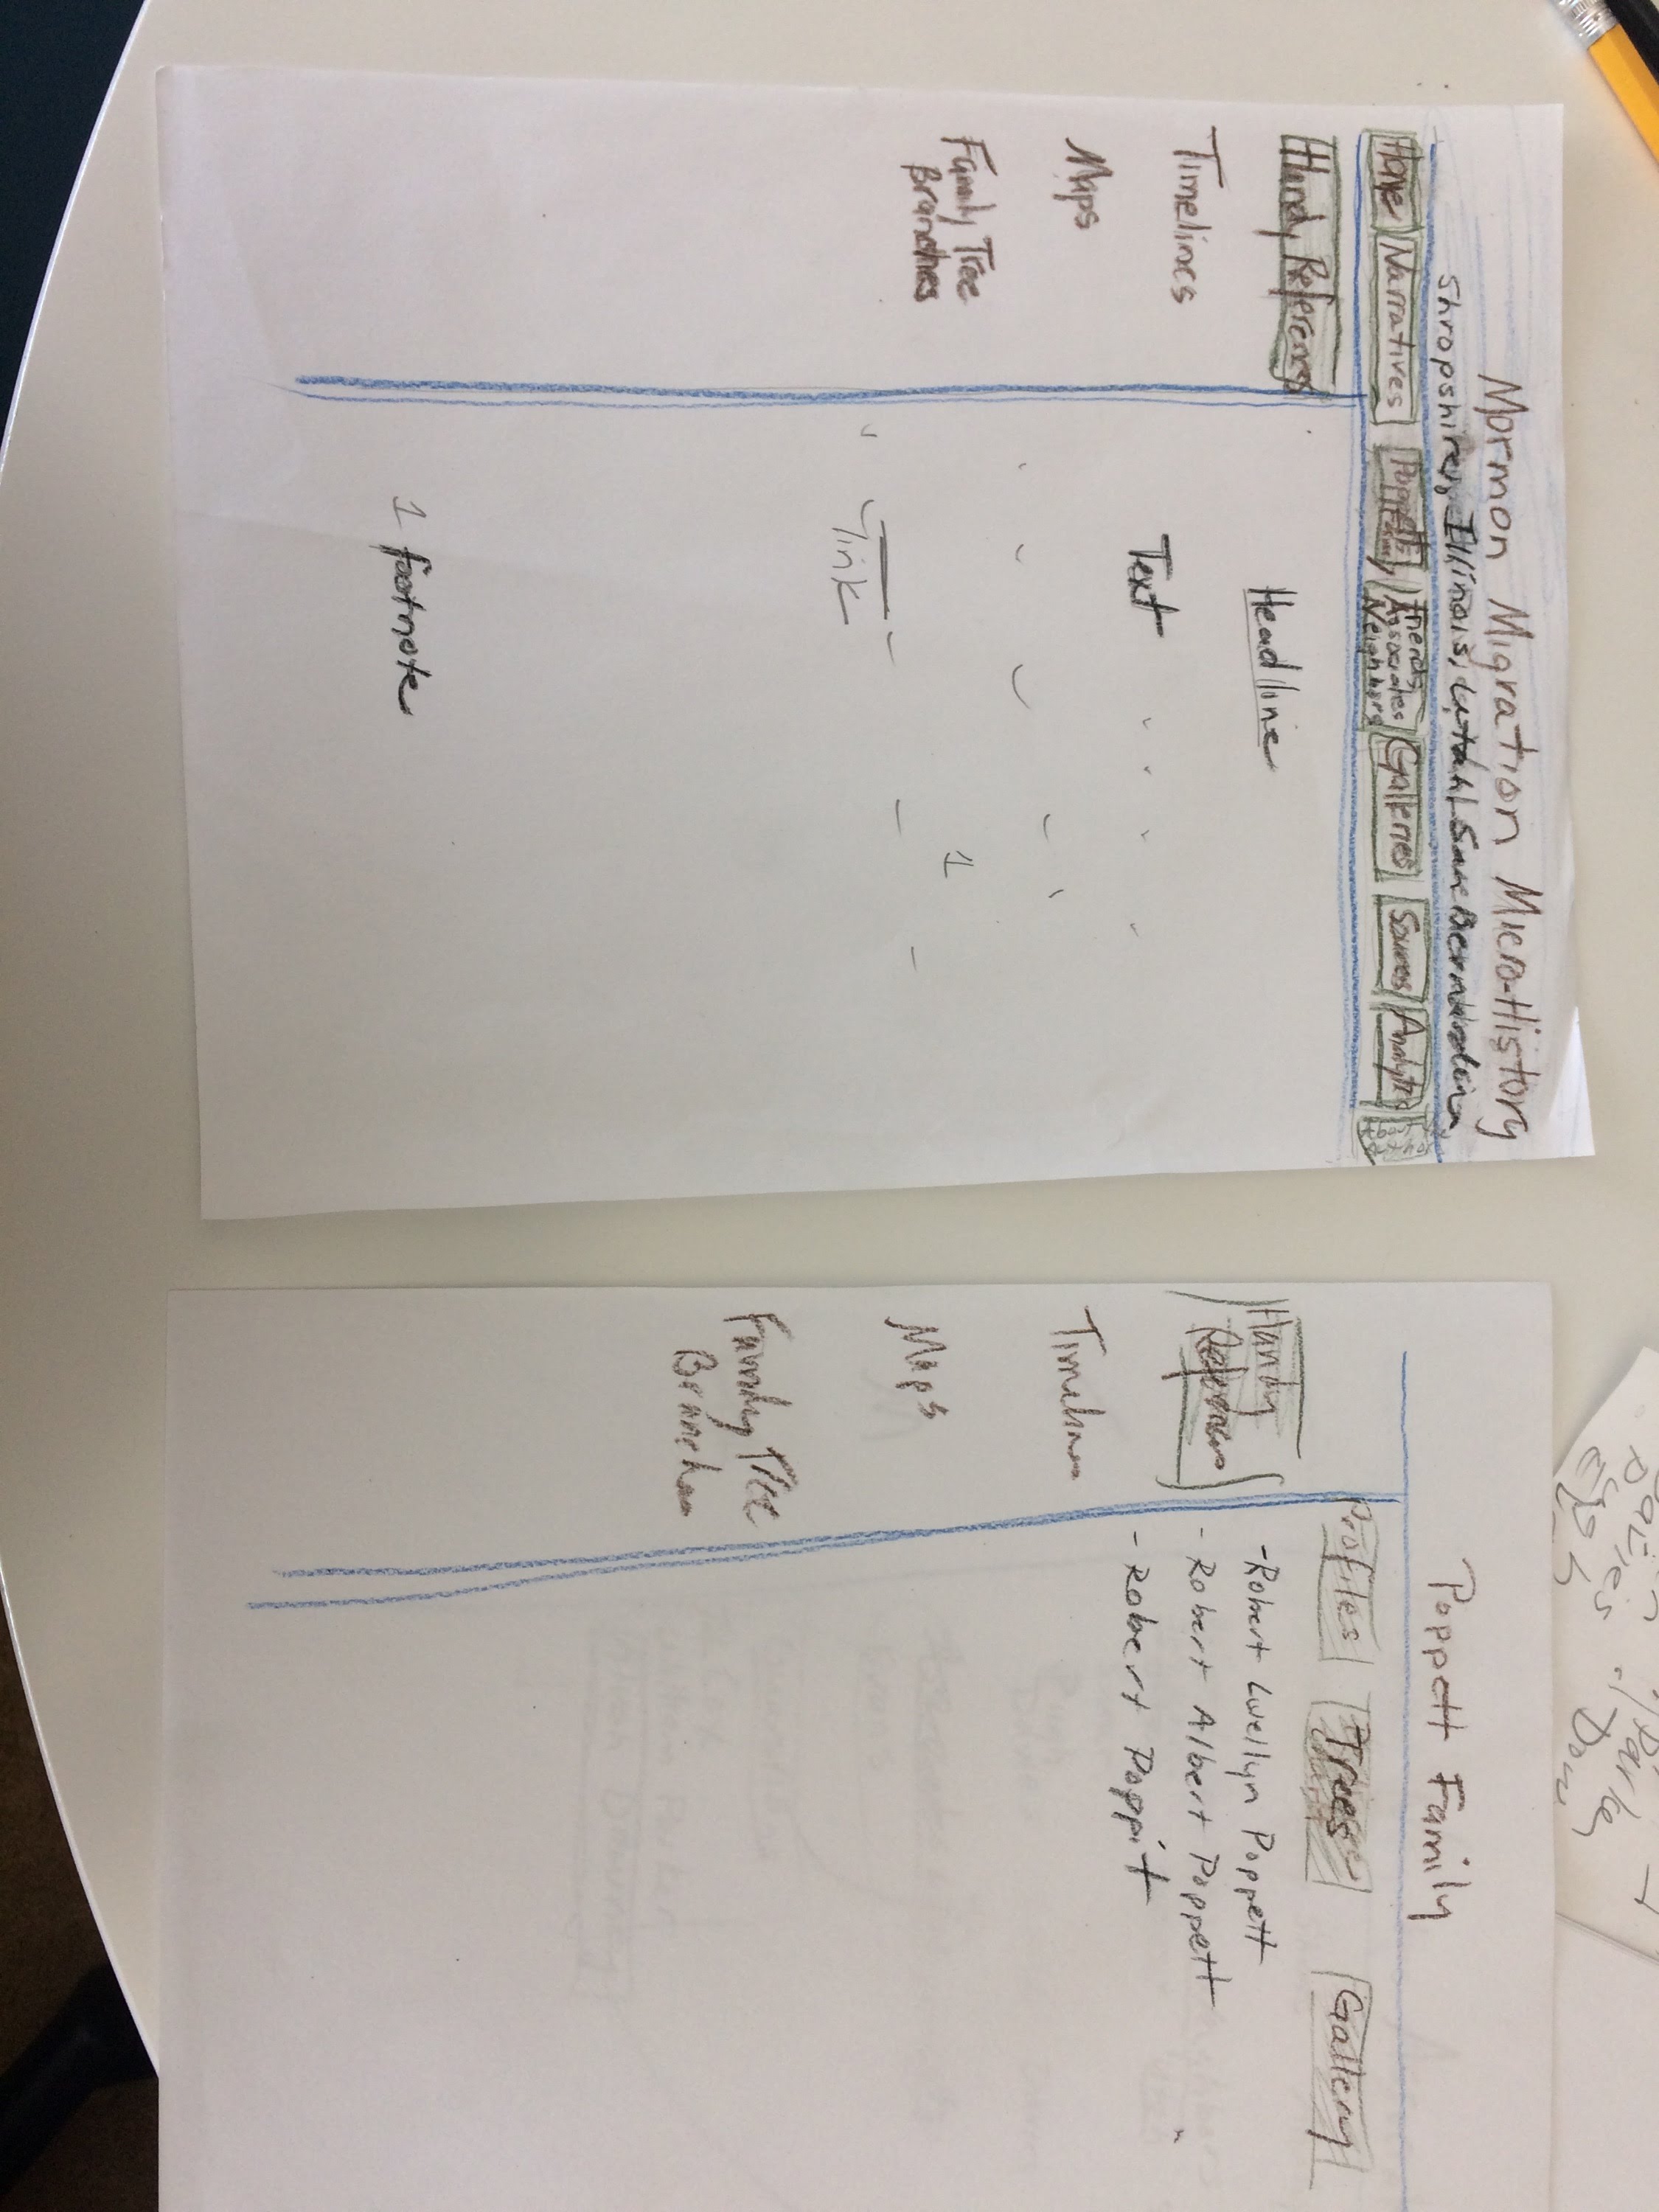 Mormon Migration Micro-History
Shropshire, Illinois, Utah, San Bernardin
Home Narratives Poppett Family Friends Associates Neighbors Galleries Sources Analytics
Handy Reference
Timelines
Maps
Family Tree
Branches
Headline
Text
1
link
1 footnote
Poppett Family
Profiles Trees Gallery
Handy
Timelines
Maps
Family Tree
Branches
- Robert Lwellyn Poppett
- Robert Albert Poppett
- Robert Poppit